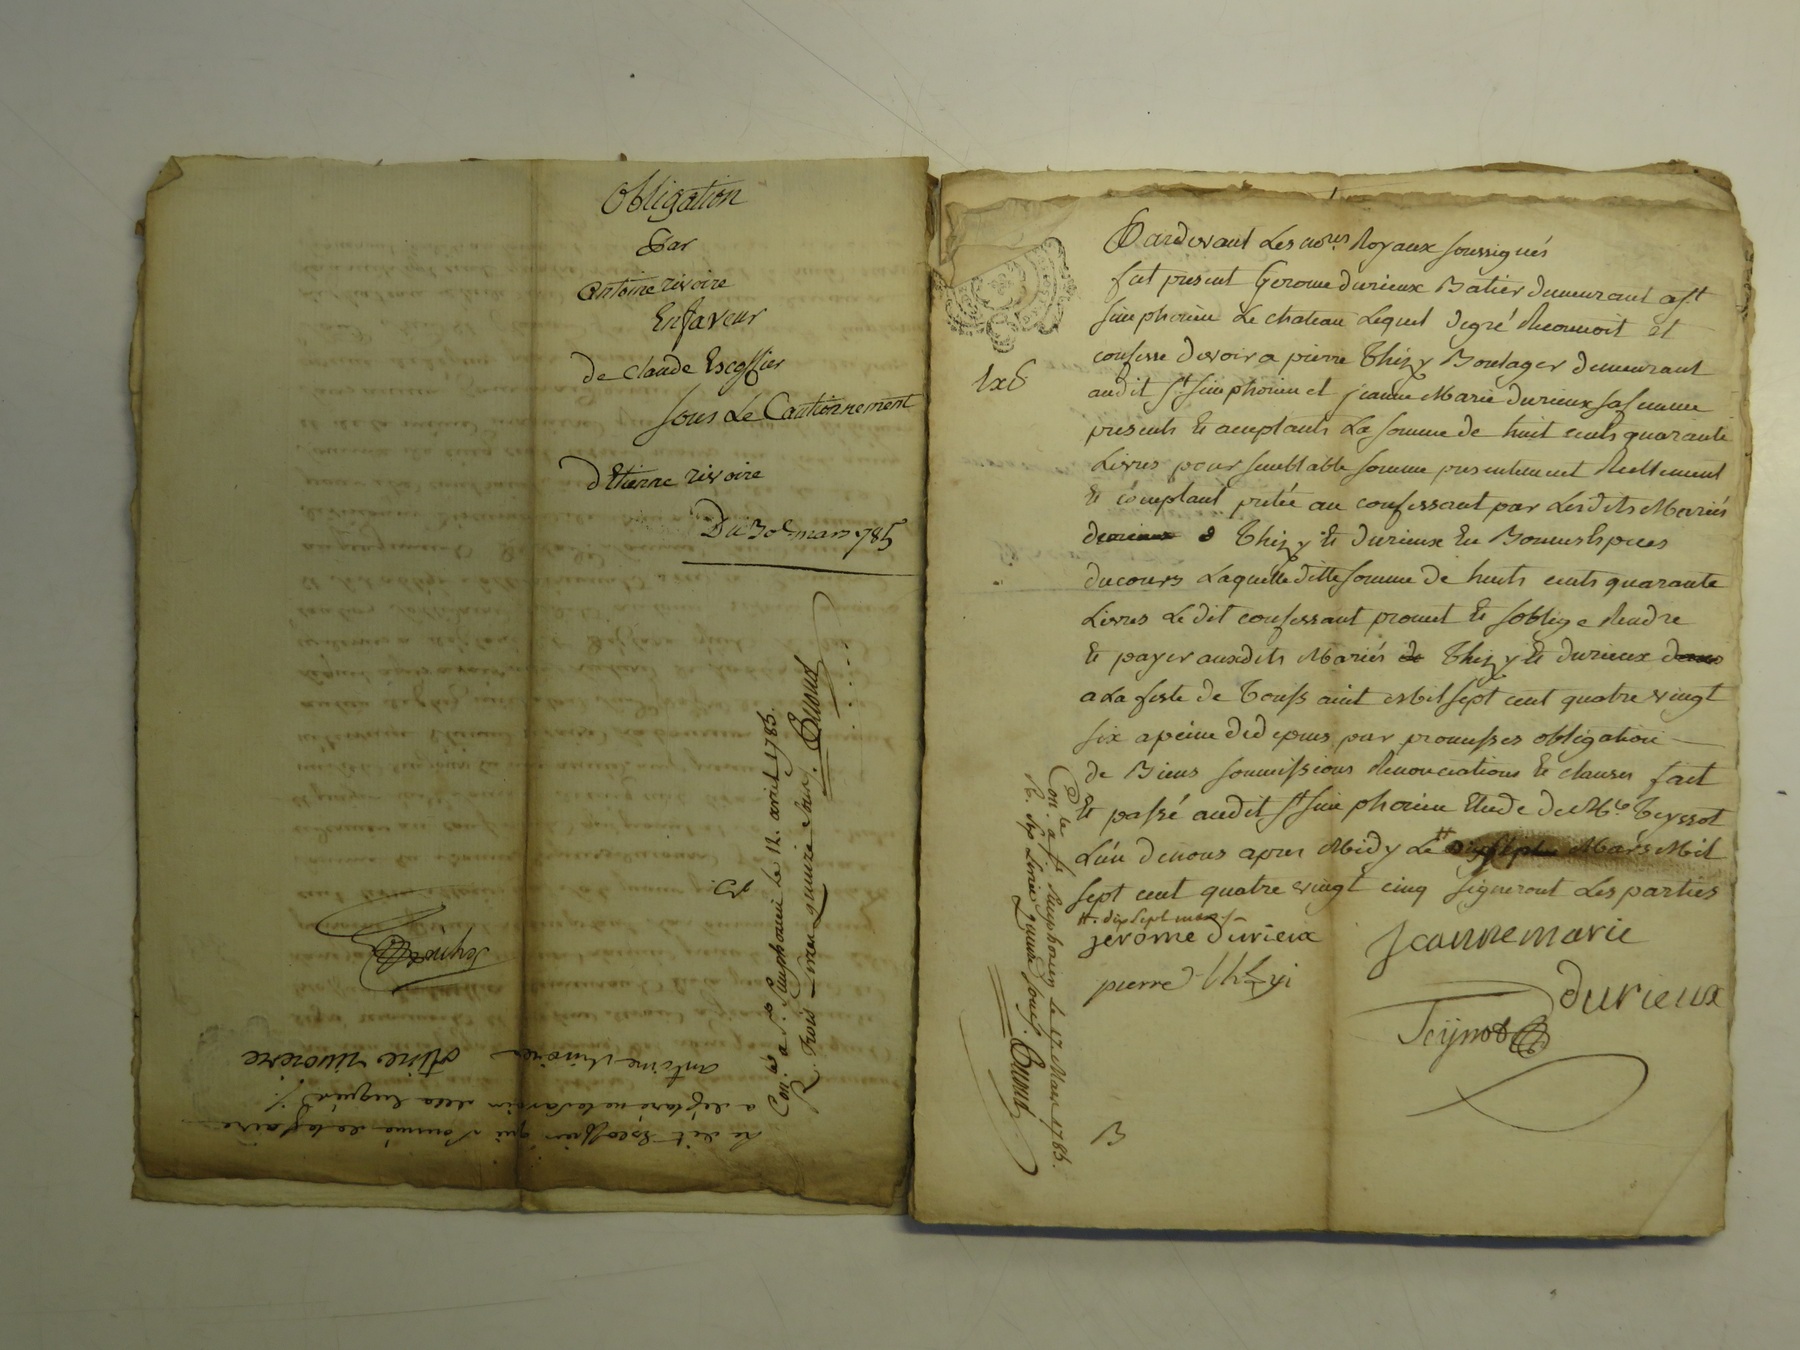 Obligation
Par
antoine rivoire
En faveur
de claude Escoffier
sous Le Cautionnement
d'Etienne rivoire
Du 30e mars 1785
Con.lé a St. Simphorien le 12. avril 1785.
R. trois Livres quinze sous.
antoine rivoire
Teynot
Pardevant Les nores. Royaux soussignés
fut present Gerome durieux Batier demeurant a St
simphorien Le chateau Lequel degré Reconnoit et
confesse devoir a pierre Thizy Boulager demeurant
audit St simphorien et jeanne Marie durieux sa femme
presents Et aceptants La somme de huit cents quarante
Livres pour semblable somme presentement Reellement
Et comptant pretée au confessant par Lesdits Mariés
durieux Thizy Et durieux En Bonnes Especes
du cours Laquelle ditte somme de huits cents quarante
Livres Le dit confessant promet Et s'oblige Rendre
Et payer auxdits Mariés de Thizy Et durieux
a La feste de Toussaint Mil sept cent quatre vingt
six a peine de depens par promesses obligation
de Biens soumissions Renonciations Et clauses fait
Et passé audit St simphorien Etude de Me Teyssot
L'un de nous apres Midy Le # Mars Mil
sept cent quatre vingt cinq signeront Les parties
#. dix sept mars
jérome durieux
Jeanne marie
durieux
pierre thizyi
Teynot
Con.lé a St. Simphorien le 17 Mars 1785.
B